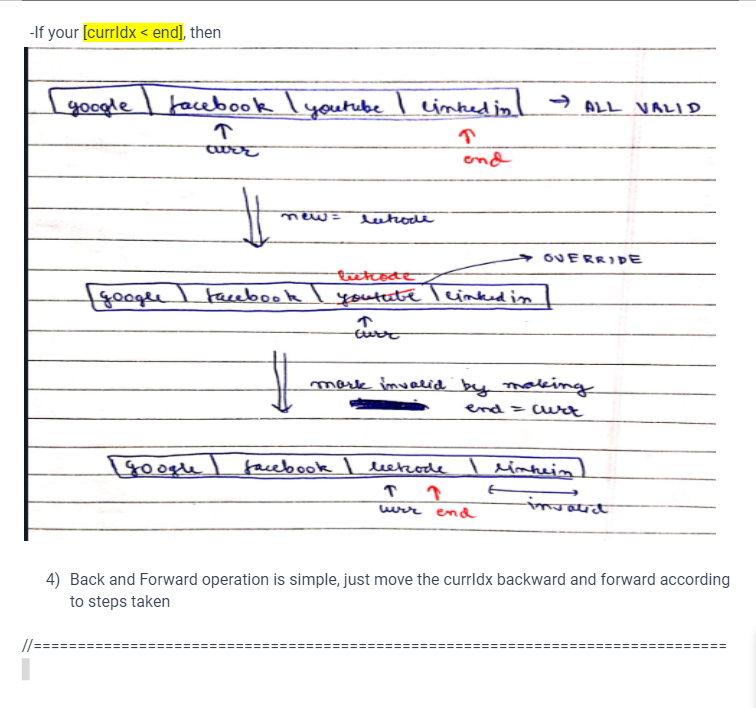 -If your [currIdx < end], then
google | facebook | youtube | linkedin → ALL VALID
↑ curr ↑ end
new = leetcode
leetcode → OVERRIDE
google | facebook | youtube | linkedin
↑ curr
mark invalid by making
end = curr
google | facebook | leetcode |
↑ ↑ invalid
curr end
4) Back and Forward operation is simple, just move the currIdx backward and forward according
to steps taken
//================================================================================